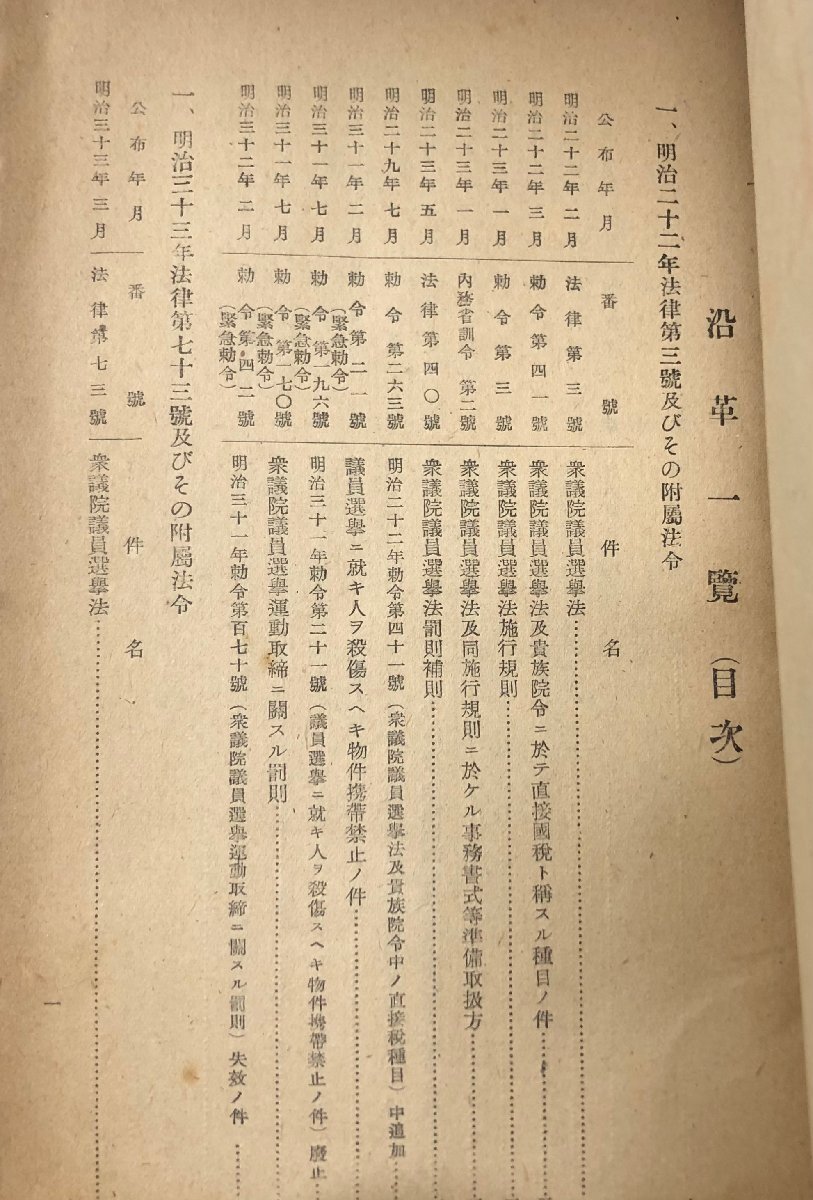 沿革一覽（目次）
一、明治二十二年法律第三號及びその附屬法令
公布年月 番號 件名
明治二十二年二月 法律第三號 衆議院議員選擧法
明治二十二年三月 勅令第四一號 衆議院議員選擧法及貴族院令ニ於テ直接國稅ト稱スル種目ノ件
明治二十三年一月 勅令第三號 衆議院議員選擧法施行規則
明治二十三年一月 內務省訓令第二號 衆議院議員選擧法及同施行規則ニ於ケル事務書式等準備取扱方
明治二十三年五月 法律第四〇號 衆議院議員選擧法罰則補則
明治二十九年七月 勅令第二六三號 明治二十二年勅令第四十一號（衆議院議員選擧法及貴族院令中ノ直接稅種目）中追加
明治三十一年二月 勅令第二一號（緊急勅令） 議員選擧ニ就キ人ヲ殺傷スヘキ物件携帶禁止ノ件
明治三十一年七月 勅令第一九六號（緊急勅令） 明治三十一年勅令第二十一號（議員選擧ニ就キ人ヲ殺傷スヘキ物件携帶禁止ノ件）廢止
明治三十一年七月 勅令第一七〇號（緊急勅令） 衆議院議員選擧運動取締ニ關スル罰則
明治三十二年二月 勅令第四二號（緊急勅令） 明治三十一年勅令第百七十號（衆議院議員選擧運動取締ニ關スル罰則）失效ノ件
一、明治三十三年法律第七十三號及びその附屬法令
公布年月 番號 件名
明治三十三年三月 法律第七三號 衆議院議員選擧法
一